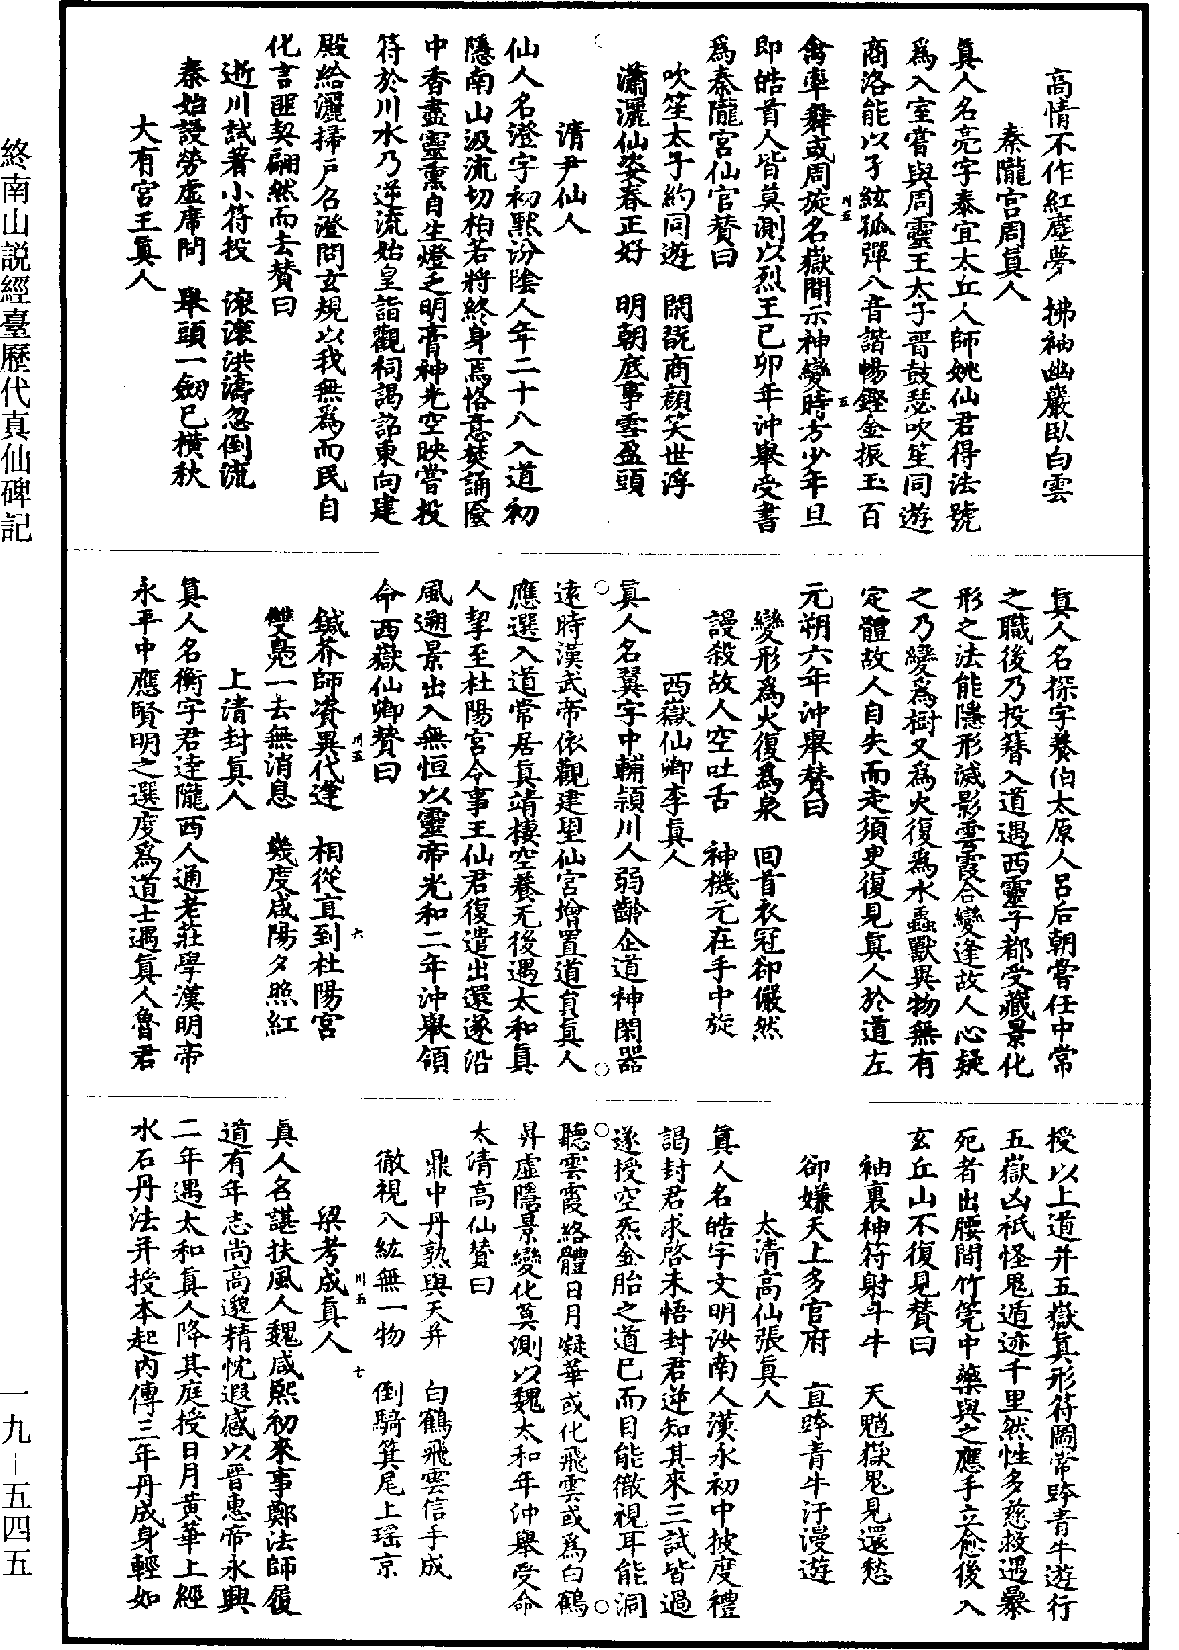 高情不作紅塵夢　拂袖幽巖臥白雲
秦隴宮周真人
真人名亮字泰宜太丘人師姚仙君得法號
為入室嘗與周靈王太子晋鼓瑟吹笙同遊
商洛能以子絃孤彈八音諧暢鏗金振玉百
禽率舞或周旋名嶽間示神變時方少年旦
即皓首人皆莫測以烈王己卯年沖舉受書
為秦隴宮仙官贊曰
吹笙太子約同遊　閑翫商顏笑世浮
瀟灑仙姿春正好　明朝底事雪盈頭
清尹仙人
仙人名澄字初默汾陰人年二十八入道初
隱南山汲流切柏若將終身焉恪意焚誦廢
中香盡靈熏自生燈乏明膏神光空映嘗投
符於川水乃逆流始皇詣觀祠謁詔東向建
殿給灑掃戶名澄問玄規以我無為而民自
化言匪契翩然而去贊曰
逝川試著小符投　滾滾洪濤忽倒流
秦始謾勞虛席問　舉頭一劍已橫秋
大有宮王真人
真人名探字養伯太原人呂后朝嘗任中常
之職後乃投簪入道遇西靈子都受藏景化
形之法能隱形滅影雲霞合變逢故人心疑
之乃變為樹又為火復為水蟲獸異物無有
定體故人自失而走須臾復見真人於道左
元朔六年沖舉贊曰
變形為火復為泉　回首衣冠卻儼然
謾殺故人空吐舌　神機元在手中旋
西嶽仙卿李真人
真人名翼字中輔潁川人弱齡企道神閑器
遠時漢武帝依觀建望仙宮增置道員真人
應選入道常居真靖棲空養无後遇太和真
人挈至杜陽宮令事王仙君復遣出還遂沿
風遡景出入無恒以靈帝光和二年沖舉領
命西嶽仙卿贊曰
鍼芥師資異代逢　相從直到杜陽宮
雙鳧一去無消息　幾度咸陽夕照紅
上清封真人
真人名衡字君達隴西人通老莊學漢明帝
永平中應賢明之選度為道士遇真人魯君
授以上道并五嶽真形符圖常跨青牛遊行
五嶽凶祇怪鬼遁迹千里然性多慈救遇暴
死者出腰間竹筦中藥與之應手立愈後入
玄丘山不復見贊曰
袖裏神符射斗牛　天魈嶽鬼見還愁
卻嫌天上多官府　直跨青牛汗漫遊
太清高仙張真人
真人名皓字文明汝南人漢永初中披度禮
謁封君求啓未悟封君逆知其來三試皆過
遂授空炁金胎之道已而目能徹視耳能洞
聽雲霞絡體日月凝華或化飛雲或為白鶴
昇虛隱景變化莫測以魏太和年沖舉受命
太清高仙贊曰
鼎中丹熟與天并　白鶴飛雲信手成
徹視八紘無一物　倒騎箕尾上瑶京
梁考成真人
真人名諶扶風人魏咸熙初來事鄭法師履
道有年志尚高邈精忱遐感以晋惠帝永興
二年遇太和真人降其庭授日月黄華上經
水石丹法并授本起內傳三年丹成身輕如
終南山説經臺歷代真仙碑記
一九—五四五